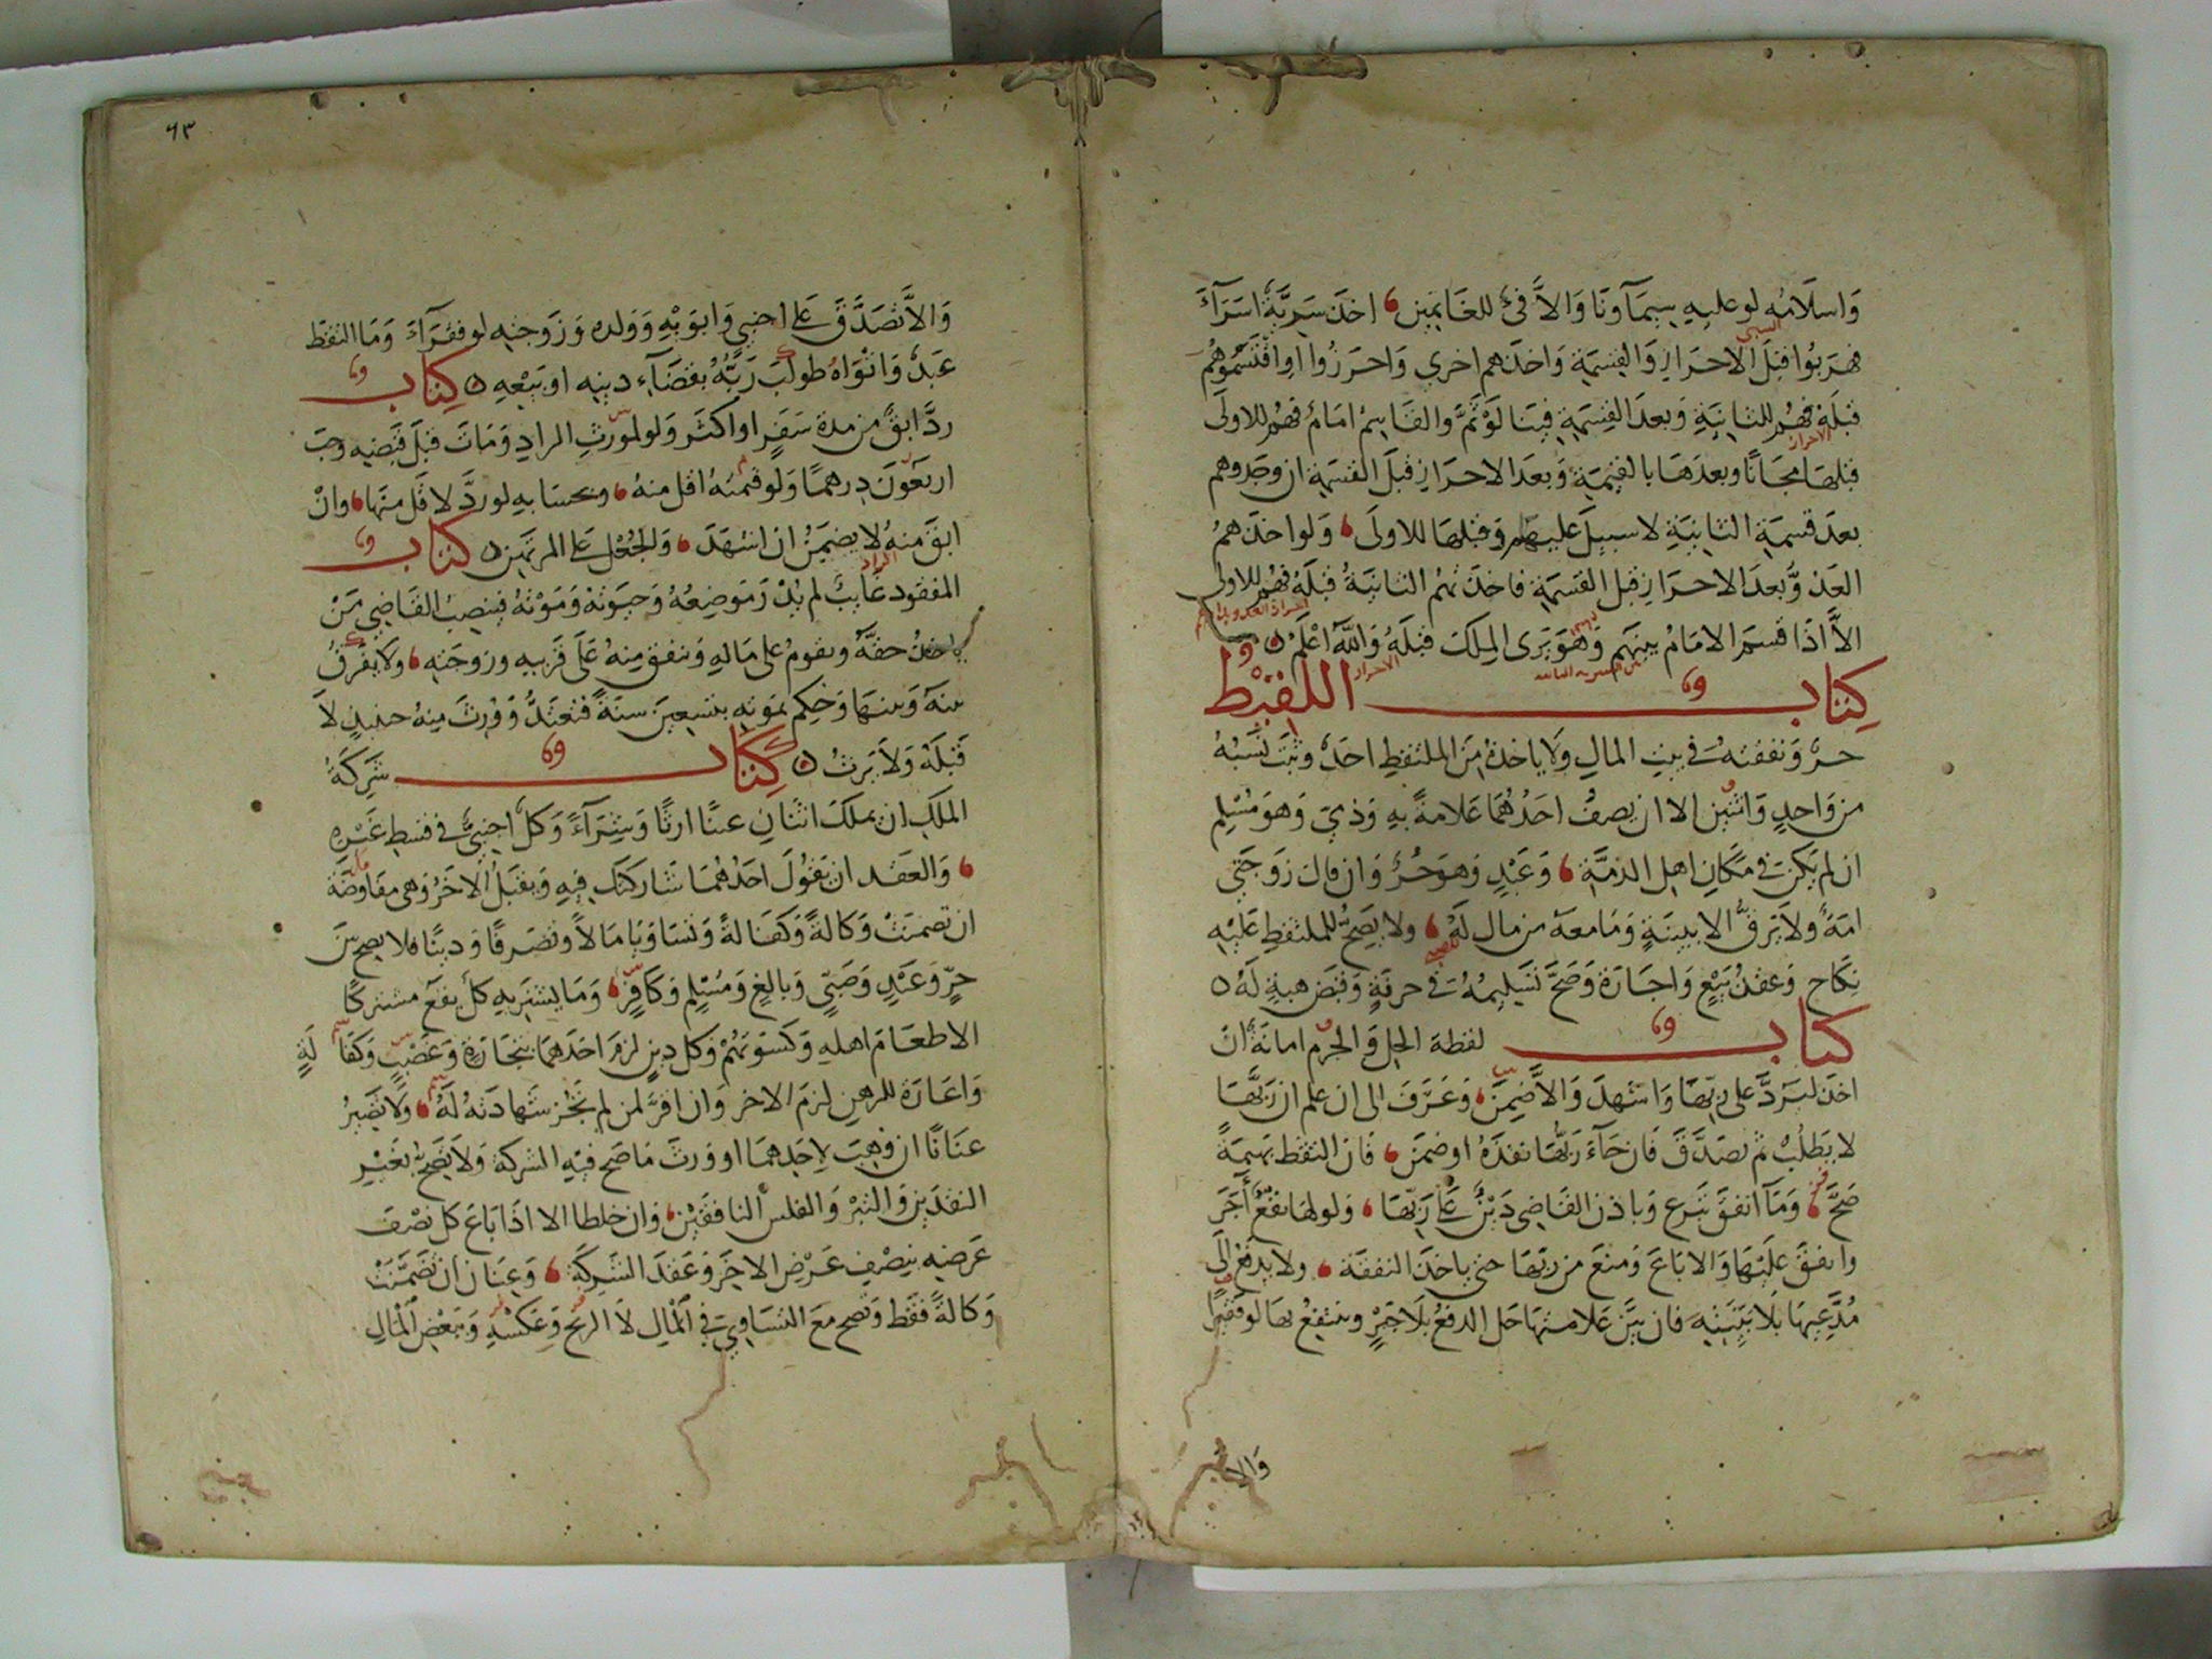 وَاسلَامُه لو عليهِ سيمَا وَنَا وَالاَّ فئ للغَانِمِين، اخذَ سَرِيَّةٌ اسَرَآءَ
السبى
فهرَبُوا قبلَ الاحرَازِ وَالقِسمَةِ وَاخذَهم اخرى وَاحرَزُوا او اقتَسَمُوهُم
قبلَهُ فهُم للثانِيَةِ وَبعدَ القِسمَةِ فيئنا لَوْ ثَمَّ والقَاسِمُ امَامٌ فهُم للاولَى
الاحراز
قبلهَا مجَانًا وبعدَهَا بالقِيمَةِ وَبعدَ الاحرَازِ قبلَ القسمَةِ ان وجَدوهم
بعدَ قسمَةِ الثانِيَةِ لا سبيلَ عليهم وَقبلهَا للاولَى، وَلو اخذَهمُ
العَدُوُّ بعدَ الاحرَازِ قبل القسمَةِ فاخذَتهُم الثانيَةُ قبلَهُ فهُم للاولى
الاَّ اذَا قسمَ الامَامُ بينَهم وَهوَ يَرَى المِلكَ قبلَهُ وَاللّٰهُ اعْلَمُ
الاحراز
كِتاب اللقِيْط
حرٌّ وَنفقتهُ فى بيتِ المالِ وَلا ياخذهُ مِنَ الملتقطِ احَدٌ وثبَتَ نسَبُهُ
من وَاحدٍ وَاثنَيْنِ الا ان يصفُ احَدُهُمَا عَلامةً بهِ وَذِيّ وَهوَ مُسْلِم
ان لم يَكن فى مَكَانِ اهلِ الذمَّةِ، وَعَبْدٍ وَهوَ حُرٌّ وَان قال زوجَتى
امَةٌ وَلا يَرِقُّ الا ببينَةٍ وَمَا معَهُ من مال لَهُ، ولا يَصِحُّ للملتقطِ عَليْهِ
نكَاح وَعقدُ بَيْعٍ وَاجَارَة وَصَحَّ تسَليمُهُ فى حرفَةٍ وَقبَض هبةٍ لَهُ
كتاب لقطة الحِل وَالحرَم امانَةٌ انْ
اخذَ ليَرُدَّ على رَبِّهَا وَاشهدَ وَالاَّ ضَمِنَ، وَعَرَّفَ الى ان علم ان رَبَّهَا
لا يَطلبُ ثم تصَدَّقَ فَان جَآءَ رَبُّهَا نفذَهُ او ضمَّنَ، فَان التقطَ بَهيمَةً
صَحَّ، وَمَآ انفقَ تبَرع وَباذن القَاضى دَيْنٌ عَلى رَبِّهَا، وَلو لهَا نفعٌ أجَرَ
وانفقَ عَلَيْهَا وَالا بَاعَ وَمنعَ من رَبّهَا حتى ياخذَ النفقَة، ولا يدفعُ الَى
مُدَّعِيهَا بِلا بَيِّنَةٍ فان بيَّنَ عَلامتهَا حَل الدفعُ بِلَا جَبْرٍ وينتفعُ بهَا لو فقيرا
والا
٦٣
وَالاَّ تصَدَّقَ عَلى اجنبى وَابوَيْهِ وَوَلده وَزَوجتهِ لو فقَرَآءَ وَمَا التقط
عَبدٌ وَاتوَاهُ طولبَ رَبُّهُ بقضَآءِ دينهِ او بَيْعِهِ كِتاب
ردَّ ابقٌ من مدة سَفَرٍ او اكثَر وَلو لمورث الرادِ وَمَاتَ قبلَ قبضهِ وجَبَ
اربَعُونَ درهمًا وَلو قيمتهُ اقل منهُ، وبحسَابهِ لو ردَّ لاقَل منهَا، وان
ابقَ منهُ لا يضمَنُ ان اشهَدَ، وَالجُعْل عَلى المرتهِن كتاب
الراد
المفقود غَايبٌ لم يُدْرَ مَوضِعُهُ وَحيَوتهُ وَمَوْتهُ فينصبُ القَاضى مَنْ
ياخذُ حقهُ ويقومُ على مَالهِ وَينفق مِنهُ عَلَى قريبهِ وزوجَتهِ، ولا يُفرّقُ
بينهُ وَبينهَا وَحكِم بمَوتهِ بتسعِينَ سنَةً فتعتَدُّ وَوُرثَ مِنهُ حينيذٍ لاَ
قَبلَهُ وَلاَ يَرثُ كِتاب شَرِكَةُ
المَلَكِ ان يملكَ اثنَانِ عينًا ارثًا وَشِرَآءً وَكلٌّ اجنبىٌّ فى قسطِ غَيْرهِ
، وَالعَقد ان يَقُولَ احَدُهُمَا شَاركتكَ فيهِ وَيَقبَلُ الاخَرُ وَهى مفاوضَة
ان تضمنَتْ وَكالةً وَكفَالةً وَتسَاوَيَا مَالاً وَتصَرفًا وَدينًا فلا يصح بينَ
حرٍّ وَعَبْدٍ وَصَبىّ وَبالِغٍ وَمُسْلِم وَكَافِرٍ، وَمَا يشتَريهِ كلٌّ يقعُ مشتركًا
الا طعَامَ اهلهِ وَكسْوَتَهُمْ وَكل دين لزمَ احَدَهمَا بتجَارَةٍ وَغَصْبٍ وَكفَا لَةٍ
وَاعَارَة للرهنِ لزمَ الاخر وَان اقرَّ لمن لم تجُز شهَادَتهُ لَهُ، وَلا يَصيرُ
عنَانًا ان وُهِبَ لاحَدِهمَا او وَرثَ مَا صَح فيْهِ الشركة وَلاَ يَصِحُّ بغَيْرِ
النقدَيْنِ وَالتبْر وَالفلس النافقَيْنِ، وَان خلطا الا اذَا بَاعَ كل نصْفَ
عَرضِهِ بنِصْفِ عَرْضِ الاخَرِ وَعَقدَ الشَرِكَة، وَعِنَان ان تضَمَّنَتْ
وَكالَةً فقط وَتصح معَ التسَاوِى فى اَلمالِ لا الربح وَعَكْسهِ وَبَعْضِ المَالِ